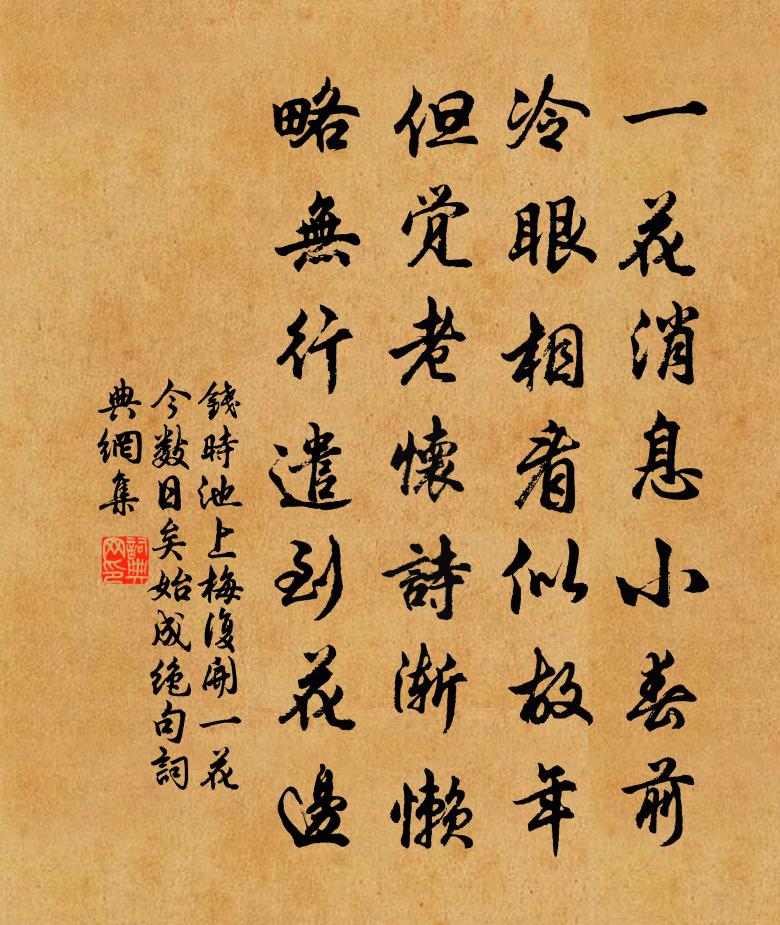 一花消息小春前
冷眼相看似故年
但觉老懷詩渐懒
略無行遣到花邊
錢時池上梅復開一花
今数日矣始成绝句詞
典網集
詞典網印